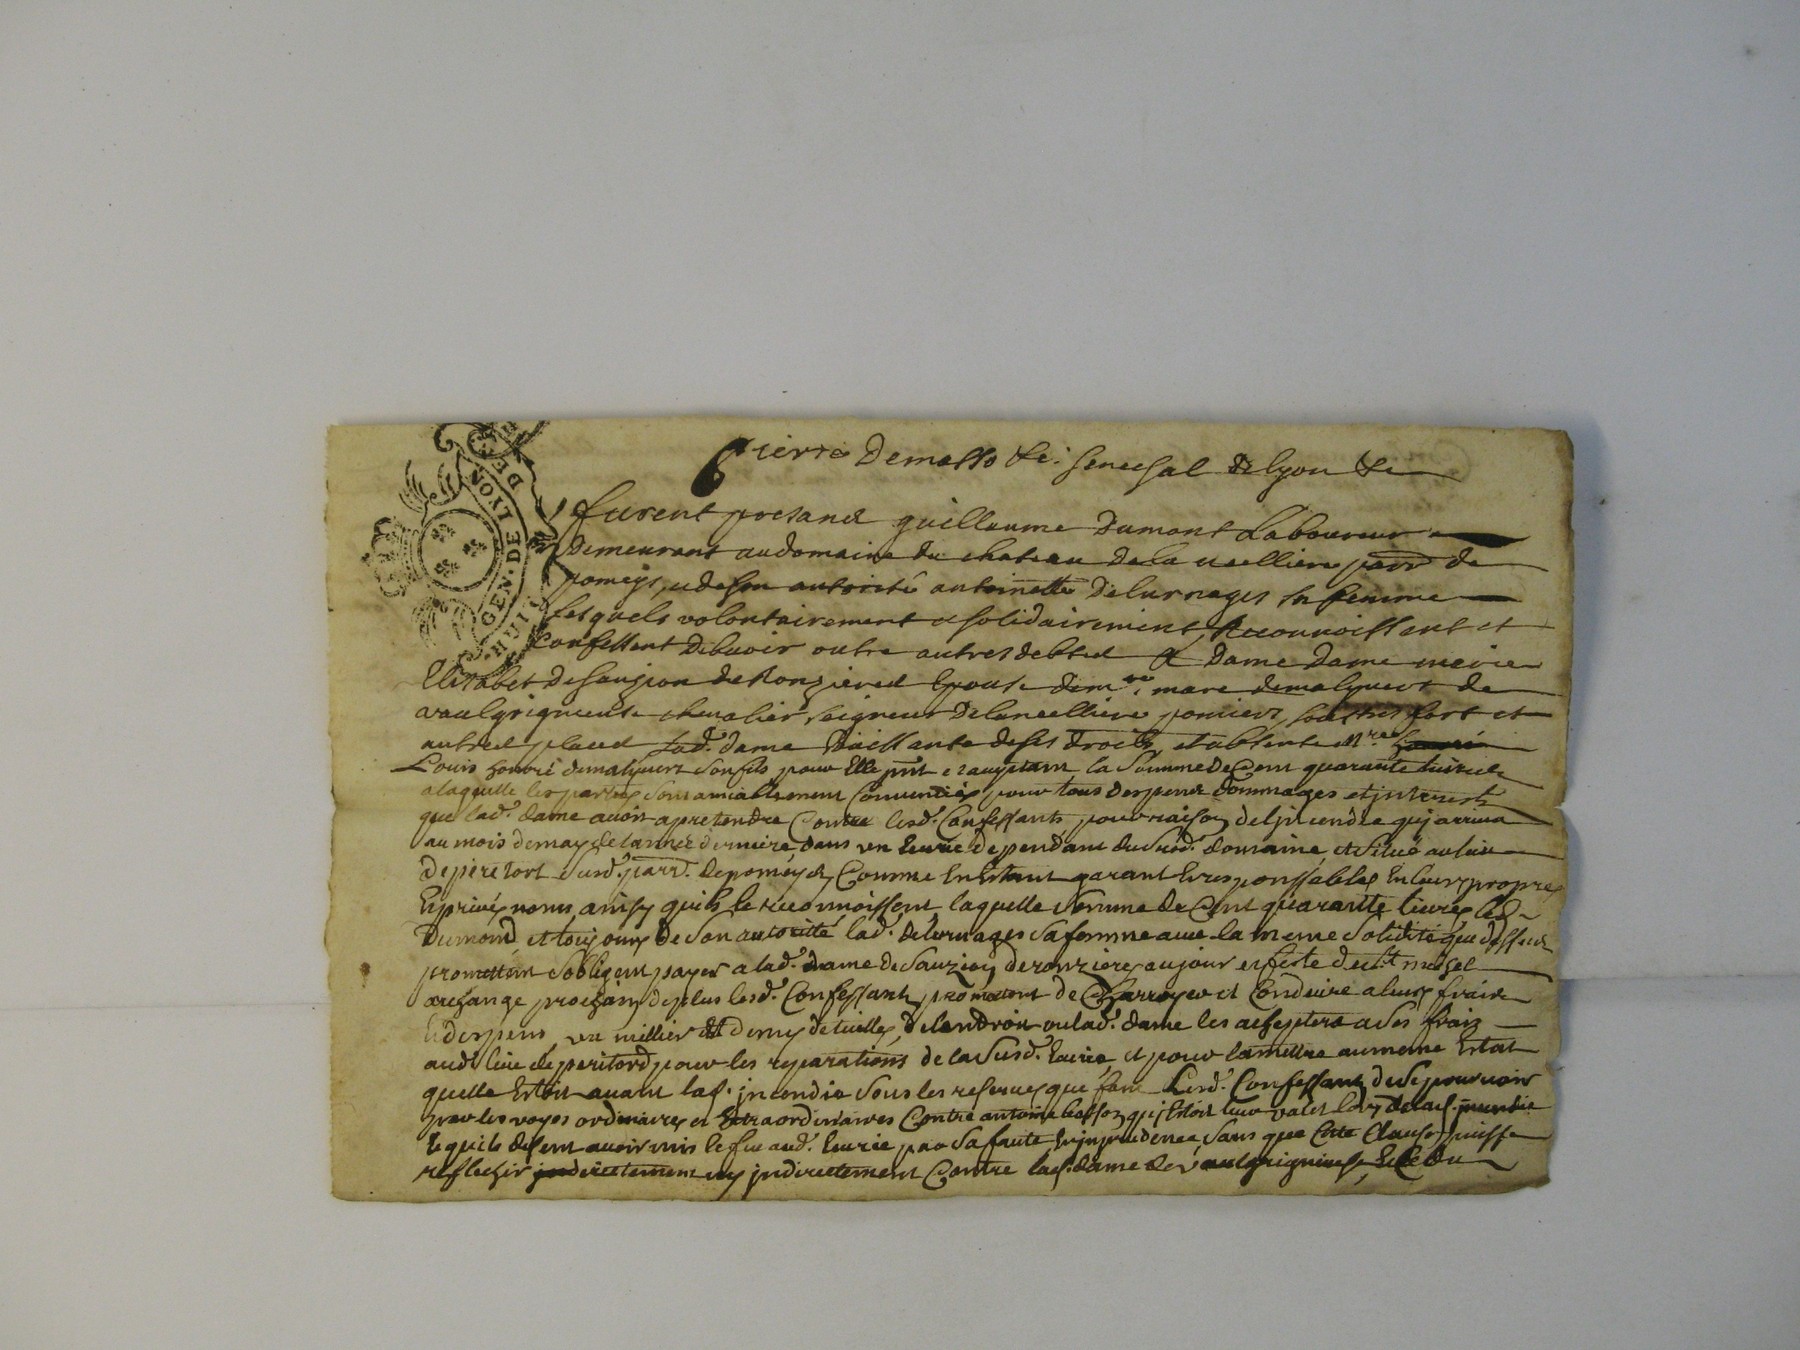 GEN. DE LYON
HUIT DE
Pierre Demasso &c. senechal de lyon &c
furent presand guillaume Dumont Laboureur
Demeurant audomaine du chateau de la neelliere parr. de
pomeys, e de son autorité antoinette Delurnages sa femme
Lesquels volontairement e solidairement, Reconnoissent et
Confessent Debuoir outre autres debted A Dame Dame marie
Elizabet de sauzion de Ronziered Epouse de mre. marc de malyuert de
vaulgrigneuse chevalier, seigneur De laneelliere pomiers, et
autred placed lad. dame de ses droits, et absente Mre
Louis honoré demalyuert son fils pour Elle pnt e acceptant, la Somme de Cent quarante liures
a laquelle les parties sont amiablement Conuenües pour tous despend dommages et jnterests
que lad. dame auoit a pretendre Contre lesd. Confessants pour raison de lincendie qui arriua
au mois de may de lannée derniere dans vn Ecurie dependant du susd. domaine, et situé au lieu
de peritort susd. parr. de pomeys, Comme En Estant garant Et responssables En leurs propres
Et privés noms, ainsy quils le reconnoissent, laquelle somme de Cent quarante liures led.
Dumond et toujours de son autoritté lad. delurnages sa femme auec la meme soliditté que dessus
promettent sobligent payer a lad. dame de Sauzion deronzieres au jour et feste de st. michel
archange prochain de plus lesd. Confessants promettent de Charroyer et Conduire a leurs fraix
Et despens, vn millier et demy de tuilles, de lendroit ou lad. dame les acheptera a ses fraix
aud. lieu de peritord pour les reparations de la susd. Ecurie, et pour la mettre au meme Estat
quelle Estoit auant lad. jncendie sous les reserues que font Lesd. Confessants de se pouruoir
par les voyes ordinaires et Extraordinaires Contre antoine qui Estoit leur valet lors de lad. jncendie
lequel ils disent auoir mis le feu aud. Ecurie par sa faute Et jmprudence, sans que Cette Clause puisse
reflechir directement ny jndirectement Contre lad. dame de vaulgrigneuse,